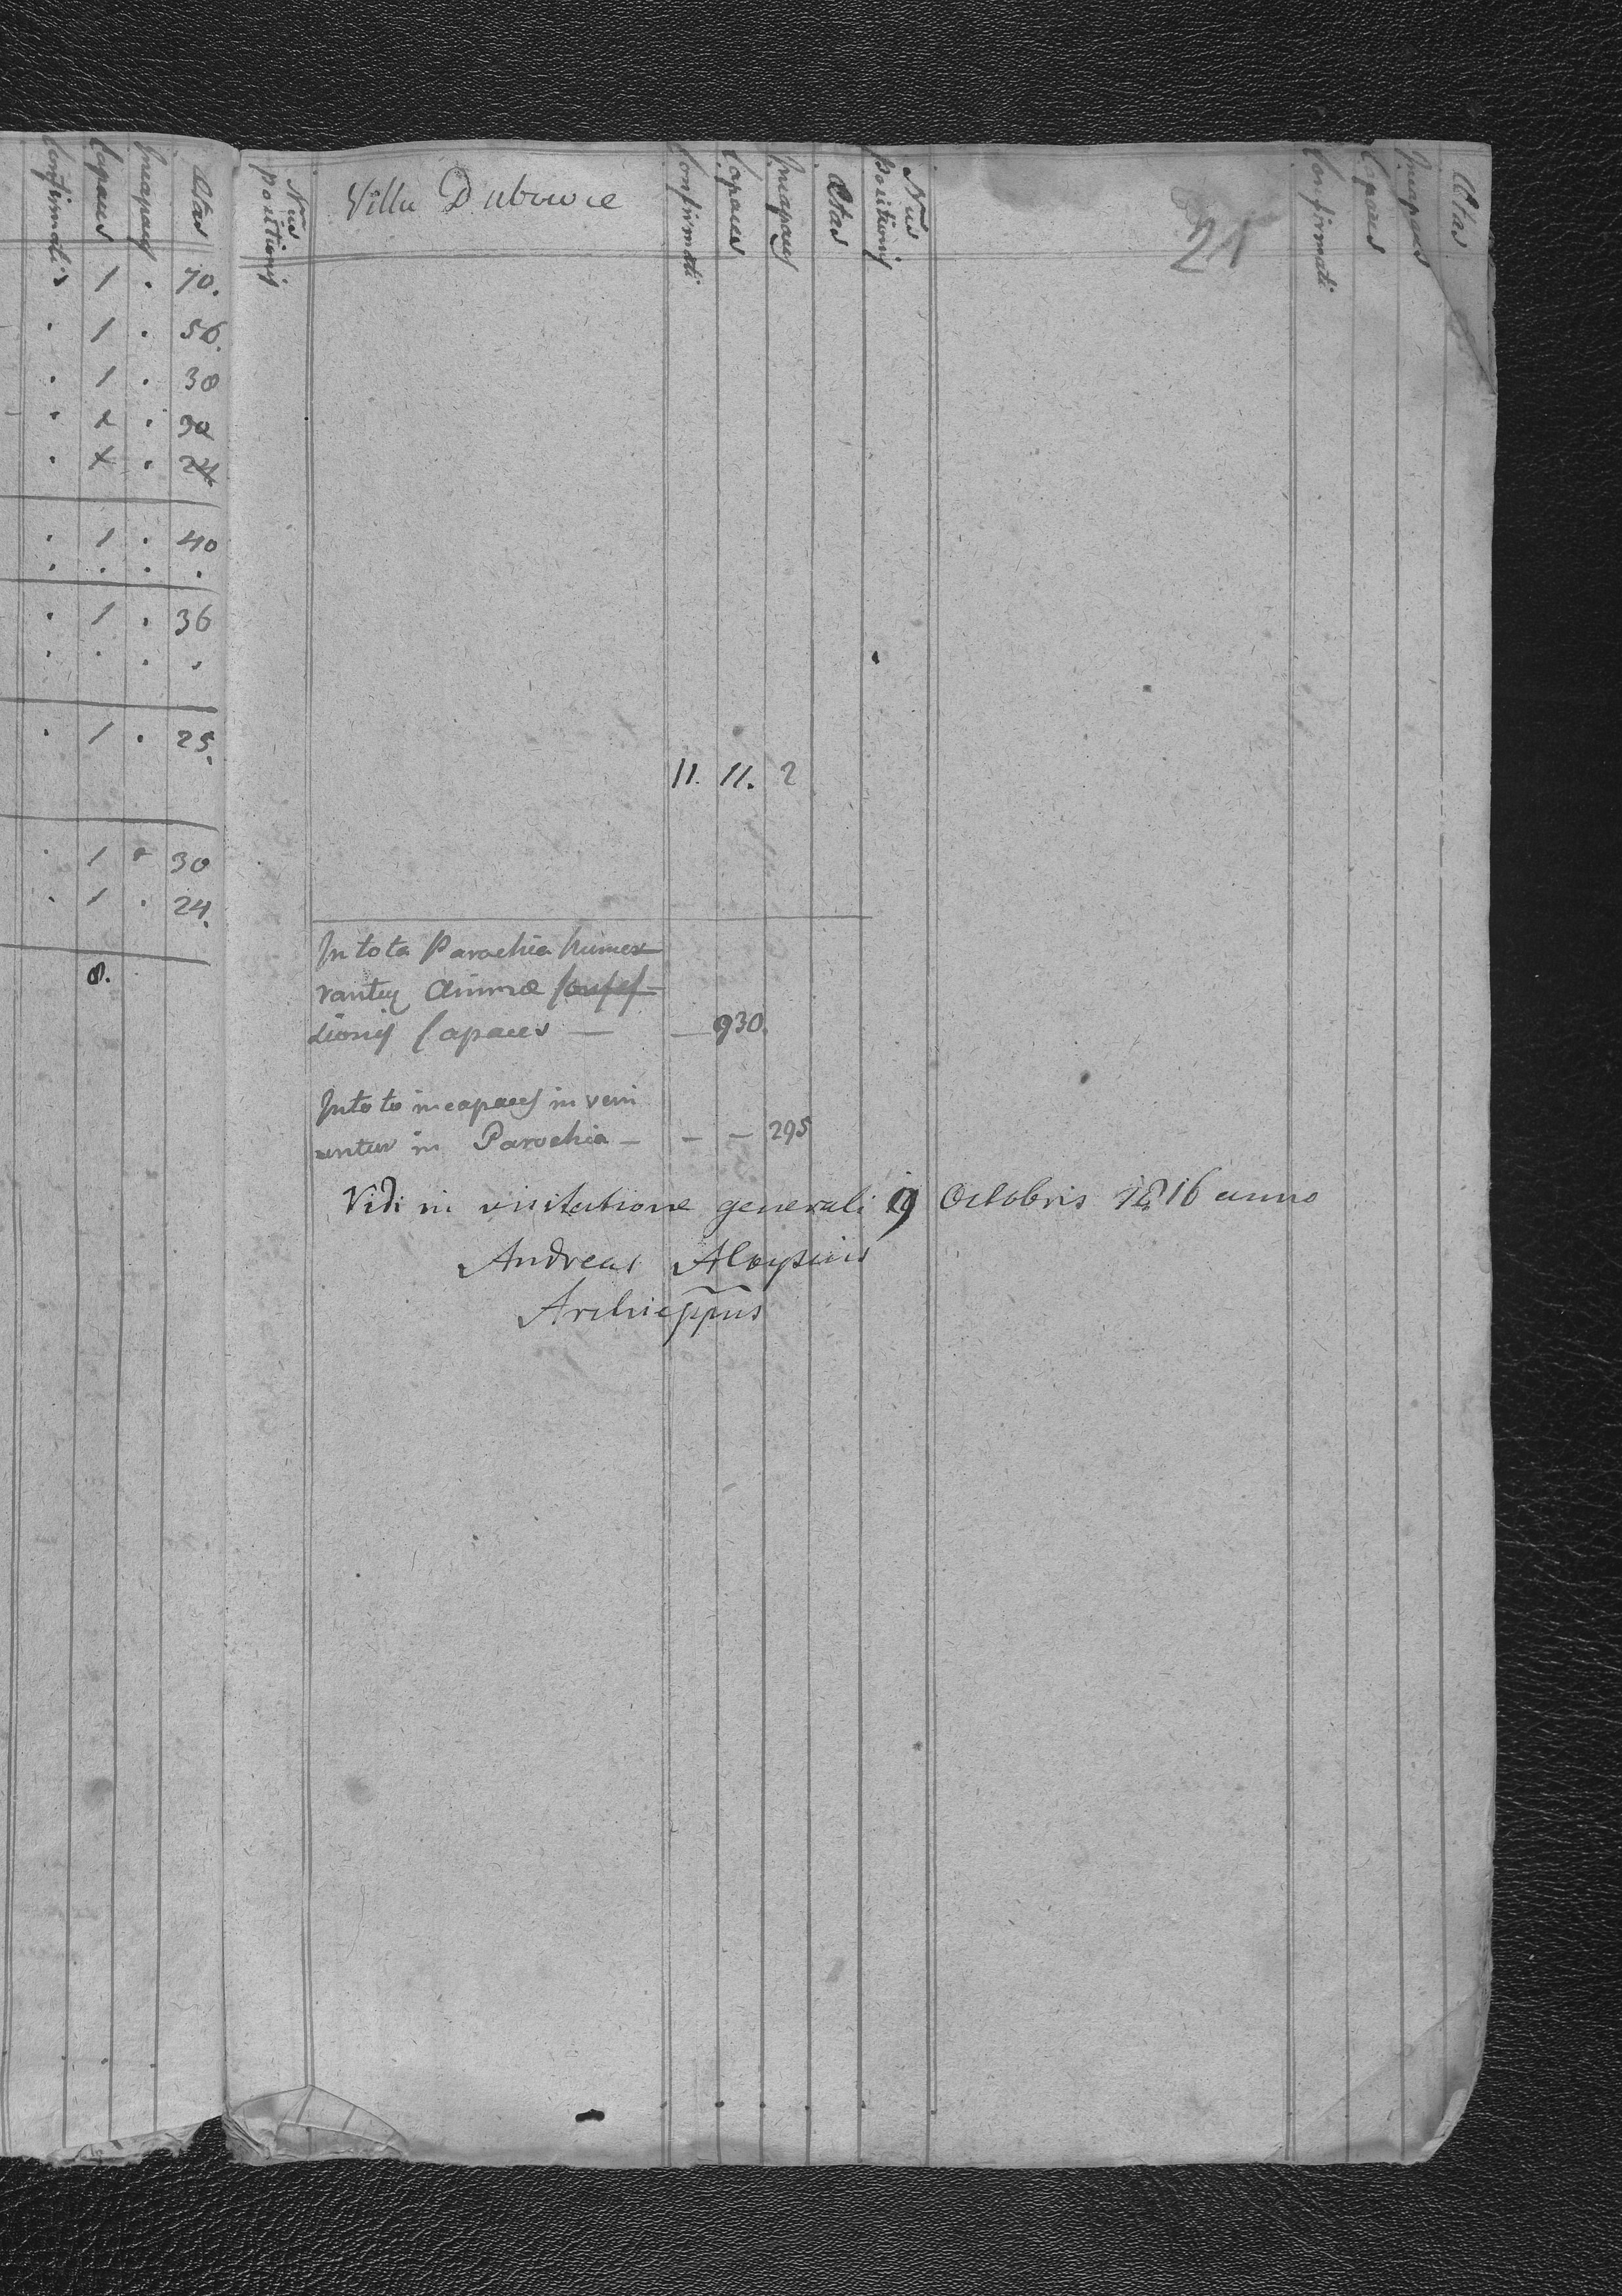 Confirmatis Capaces Incapaces Ætas
1 . 70.
. 1 . 56.
. 1 . 38
. 1 . 30
. 1 . 24.
. 1 . 40
. . . .
. 1 . 36
. . . .
. 1 . 25.
. 1 . 30
. 1 . 24.
8.
Nrus Positionis Villa Dubowce Confirmati Capaces Incapaces Ætas
11. 11. 2
In tota Parochia hume
rantur Animæ Confes=
sionis Capaces — — 930.
In toto incapaces inveni
untur in Parochia — — — 295
Nrus Positionis 21 Confirmati Capaces Incapaces Ætas
Vidi in visitatione generali 9 Octobris 1816 anno
Andreas Aloysius
Archieppus